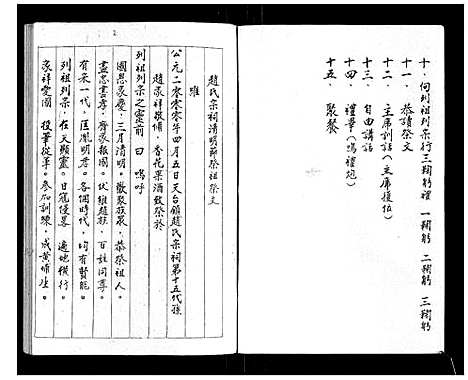 十、向列祖列宗行三鞠躬禮 一鞠躬 二鞠躬 三鞠躬
十一、恭讀祭文
十二、主席訓話（主席復位）
十三、自由講話
十四、禮畢（鳴禮炮）
十五、聚餐
趙氏宗祠清明節祭祖文
維
公元二零零零年四月五日天台鎮趙氏宗祠第十五代孫
趙家祥敬備，香花果酒致祭於
列祖列宗之靈前 曰 嗚呼
國恩家慶，三月清明。歡聚族眾，恭祭祖人。
盡忠盡孝，齊家報國。伏維趙族，百姓同尊。
有宋一代，匡胤明君。各個時代，均有賢能。
列祖列宗，在天顯靈。日寇侵略 遍地橫行。
家祥愛國 投筆從軍。參加訓練，成黃埔生。